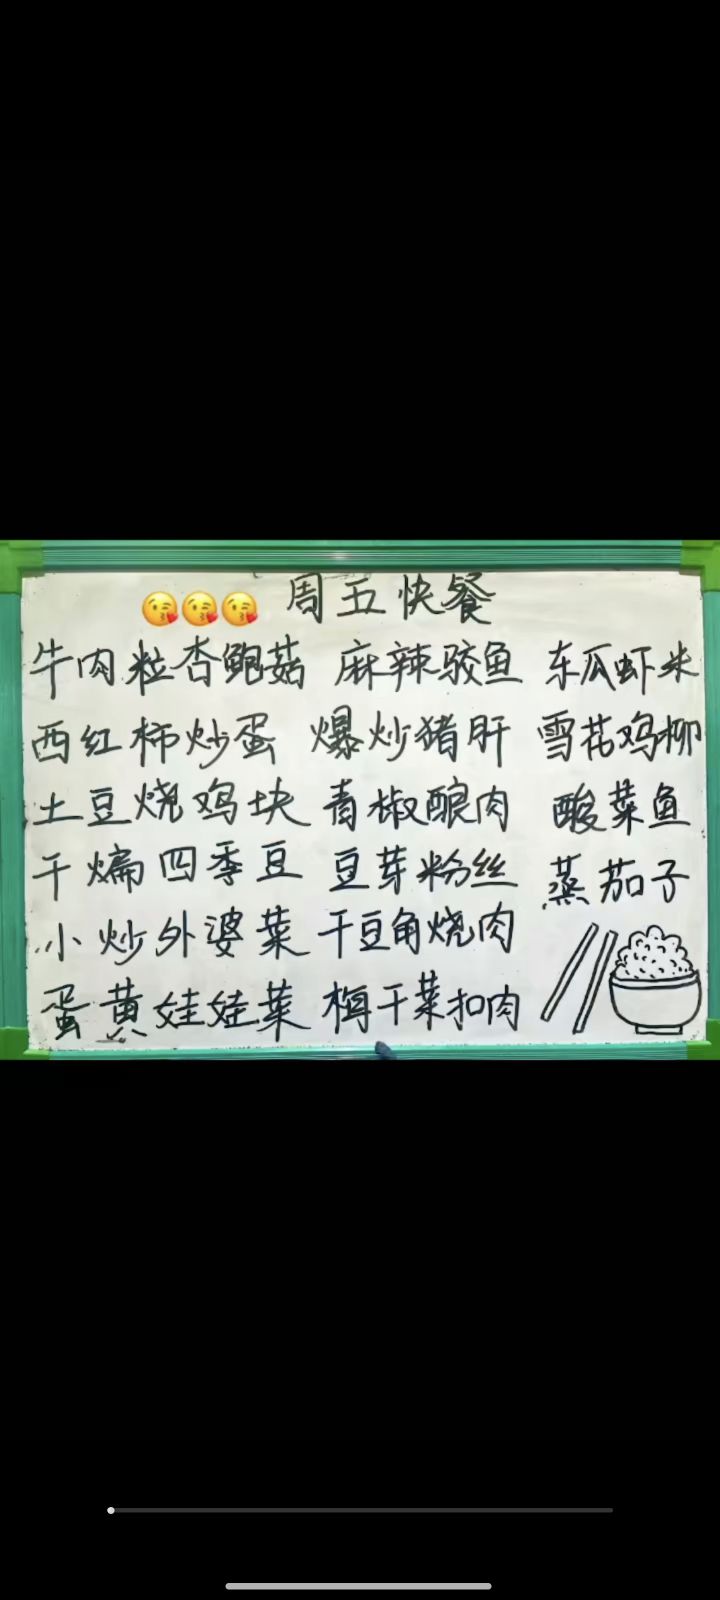 周五快餐
牛肉粒杏鲍菇 麻辣鲛鱼 东瓜虾米
西红柿炒蛋 爆炒猪肝 雪花鸡柳
土豆烧鸡块 青椒酿肉 酸菜鱼
干煸四季豆 豆芽粉丝 蒸茄子
小炒外婆菜 干豆角烧肉
蛋黄娃娃菜 梅干菜扣肉